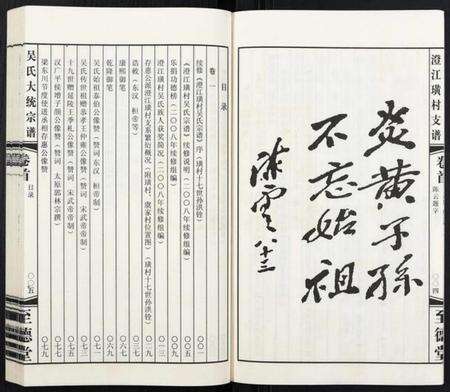 澄江璜村支谱 卷首 陈云题字 〇〇四 至德堂
炎黄子孙
不忘始祖
陈云 八十三
目录
卷一
续修《澄江璜村吴氏宗谱》序(璜村十七世孙洪铨) 〇〇一
《澄江璜村吴氏宗谱》续修说明(二〇〇八年续修组编) 〇〇五
乐捐功德榜(二〇〇八年续修组编) 〇〇九
澄江璜村吴氏族人获奖简况(二〇〇八年续修组编) 〇一三
存惠公派澄江璜村支系繁衍概况(附璜村、虞家村位置图)(璜村十七世孙洪铨) 〇一九
诰敕(东汉 桓帝等)
康熙御笔
乾隆御笔 〇六七
吴氏始祖泰伯公像赞(赞词东汉 桓帝制) 〇六九
吴氏传世祖赠恭孝王仲雍公像赞(赞词 宋武帝制) 〇七一
十九世赠延陵王季札公像赞(赞词 宋武帝制) 〇七三
汉广平侯增子颜公像赞(赞词 太原郭林宗撰) 〇七七
梁东川节度使进承相存惠公像赞 〇七九
吴氏大统宗谱 卷首 目录 〇〇五 至德堂